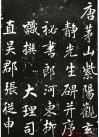 唐茅山紫陽觀玄
静先生碑并序
秘書郎河東柳
識撰　大理司
直吴郡張從申